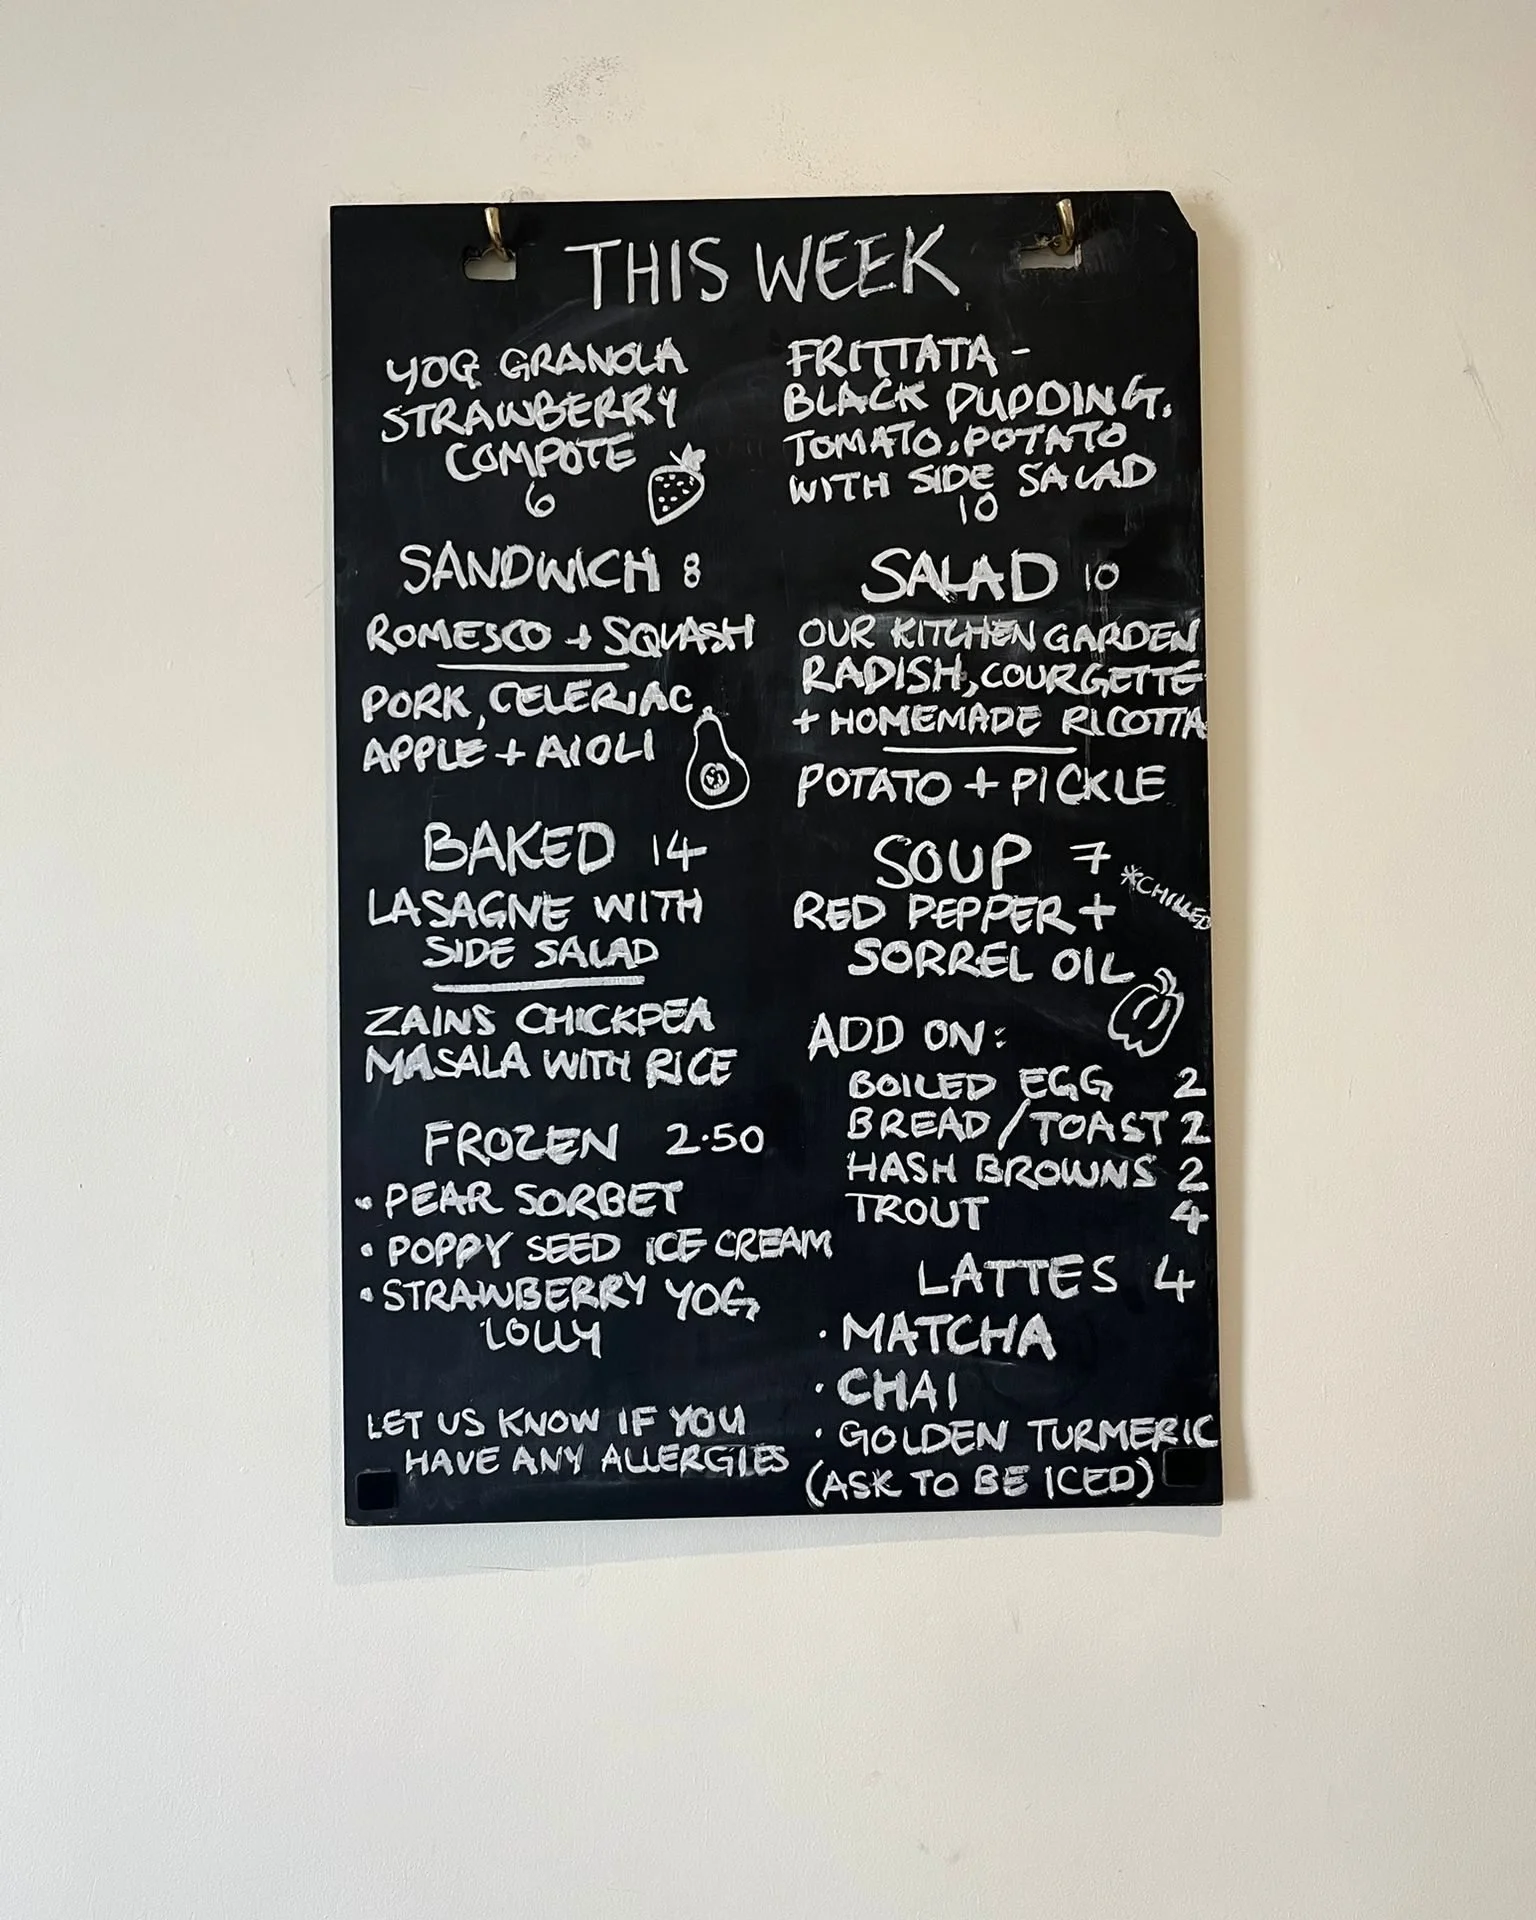 THIS WEEK
YOG GRANOLA
STRAWBERRY
COMPOTE
6
SANDWICH 8
ROMESCO + SQUASH
PORK, CELERIAC
APPLE + AIOLI
BAKED 14
LASAGNE WITH
SIDE SALAD
ZAINS CHICKPEA
MASALA WITH RICE
FROZEN 2.50
• PEAR SORBET
• POPPY SEED ICE CREAM
• STRAWBERRY YOG
LOLLY
LET US KNOW IF YOU
HAVE ANY ALLERGIES
FRITTATA -
BLACK PUDDING.
TOMATO, POTATO
WITH SIDE SALAD
10
SALAD 10
OUR KITCHEN GARDEN
RADISH, COURGETTE
+ HOMEMADE RICOTTA
POTATO + PICKLE
SOUP 7
*CHILLED
RED PEPPER +
SORREL OIL
ADD ON:
BOILED EGG 2
BREAD/TOAST 2
HASH BROWNS 2
TROUT 4
LATTES 4
• MATCHA
• CHAI
• GOLDEN TURMERIC
(ASK TO BE ICED)